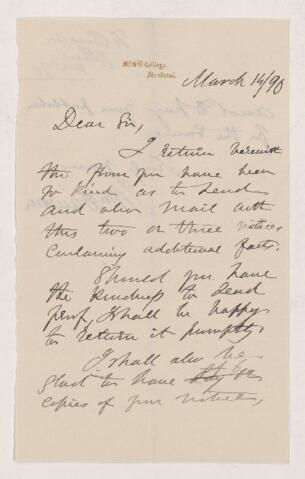 McGill College,
Montreal.
March 14/90
Dear Sir,
I return herewith
the form you have been
so kind as to send
and also mail with
this two or three notices
containing additional facts.
Should you have
the kindness to send
proof, I shall be happy
to return it promptly.
I shall also be
glad to have
copies of your notices,